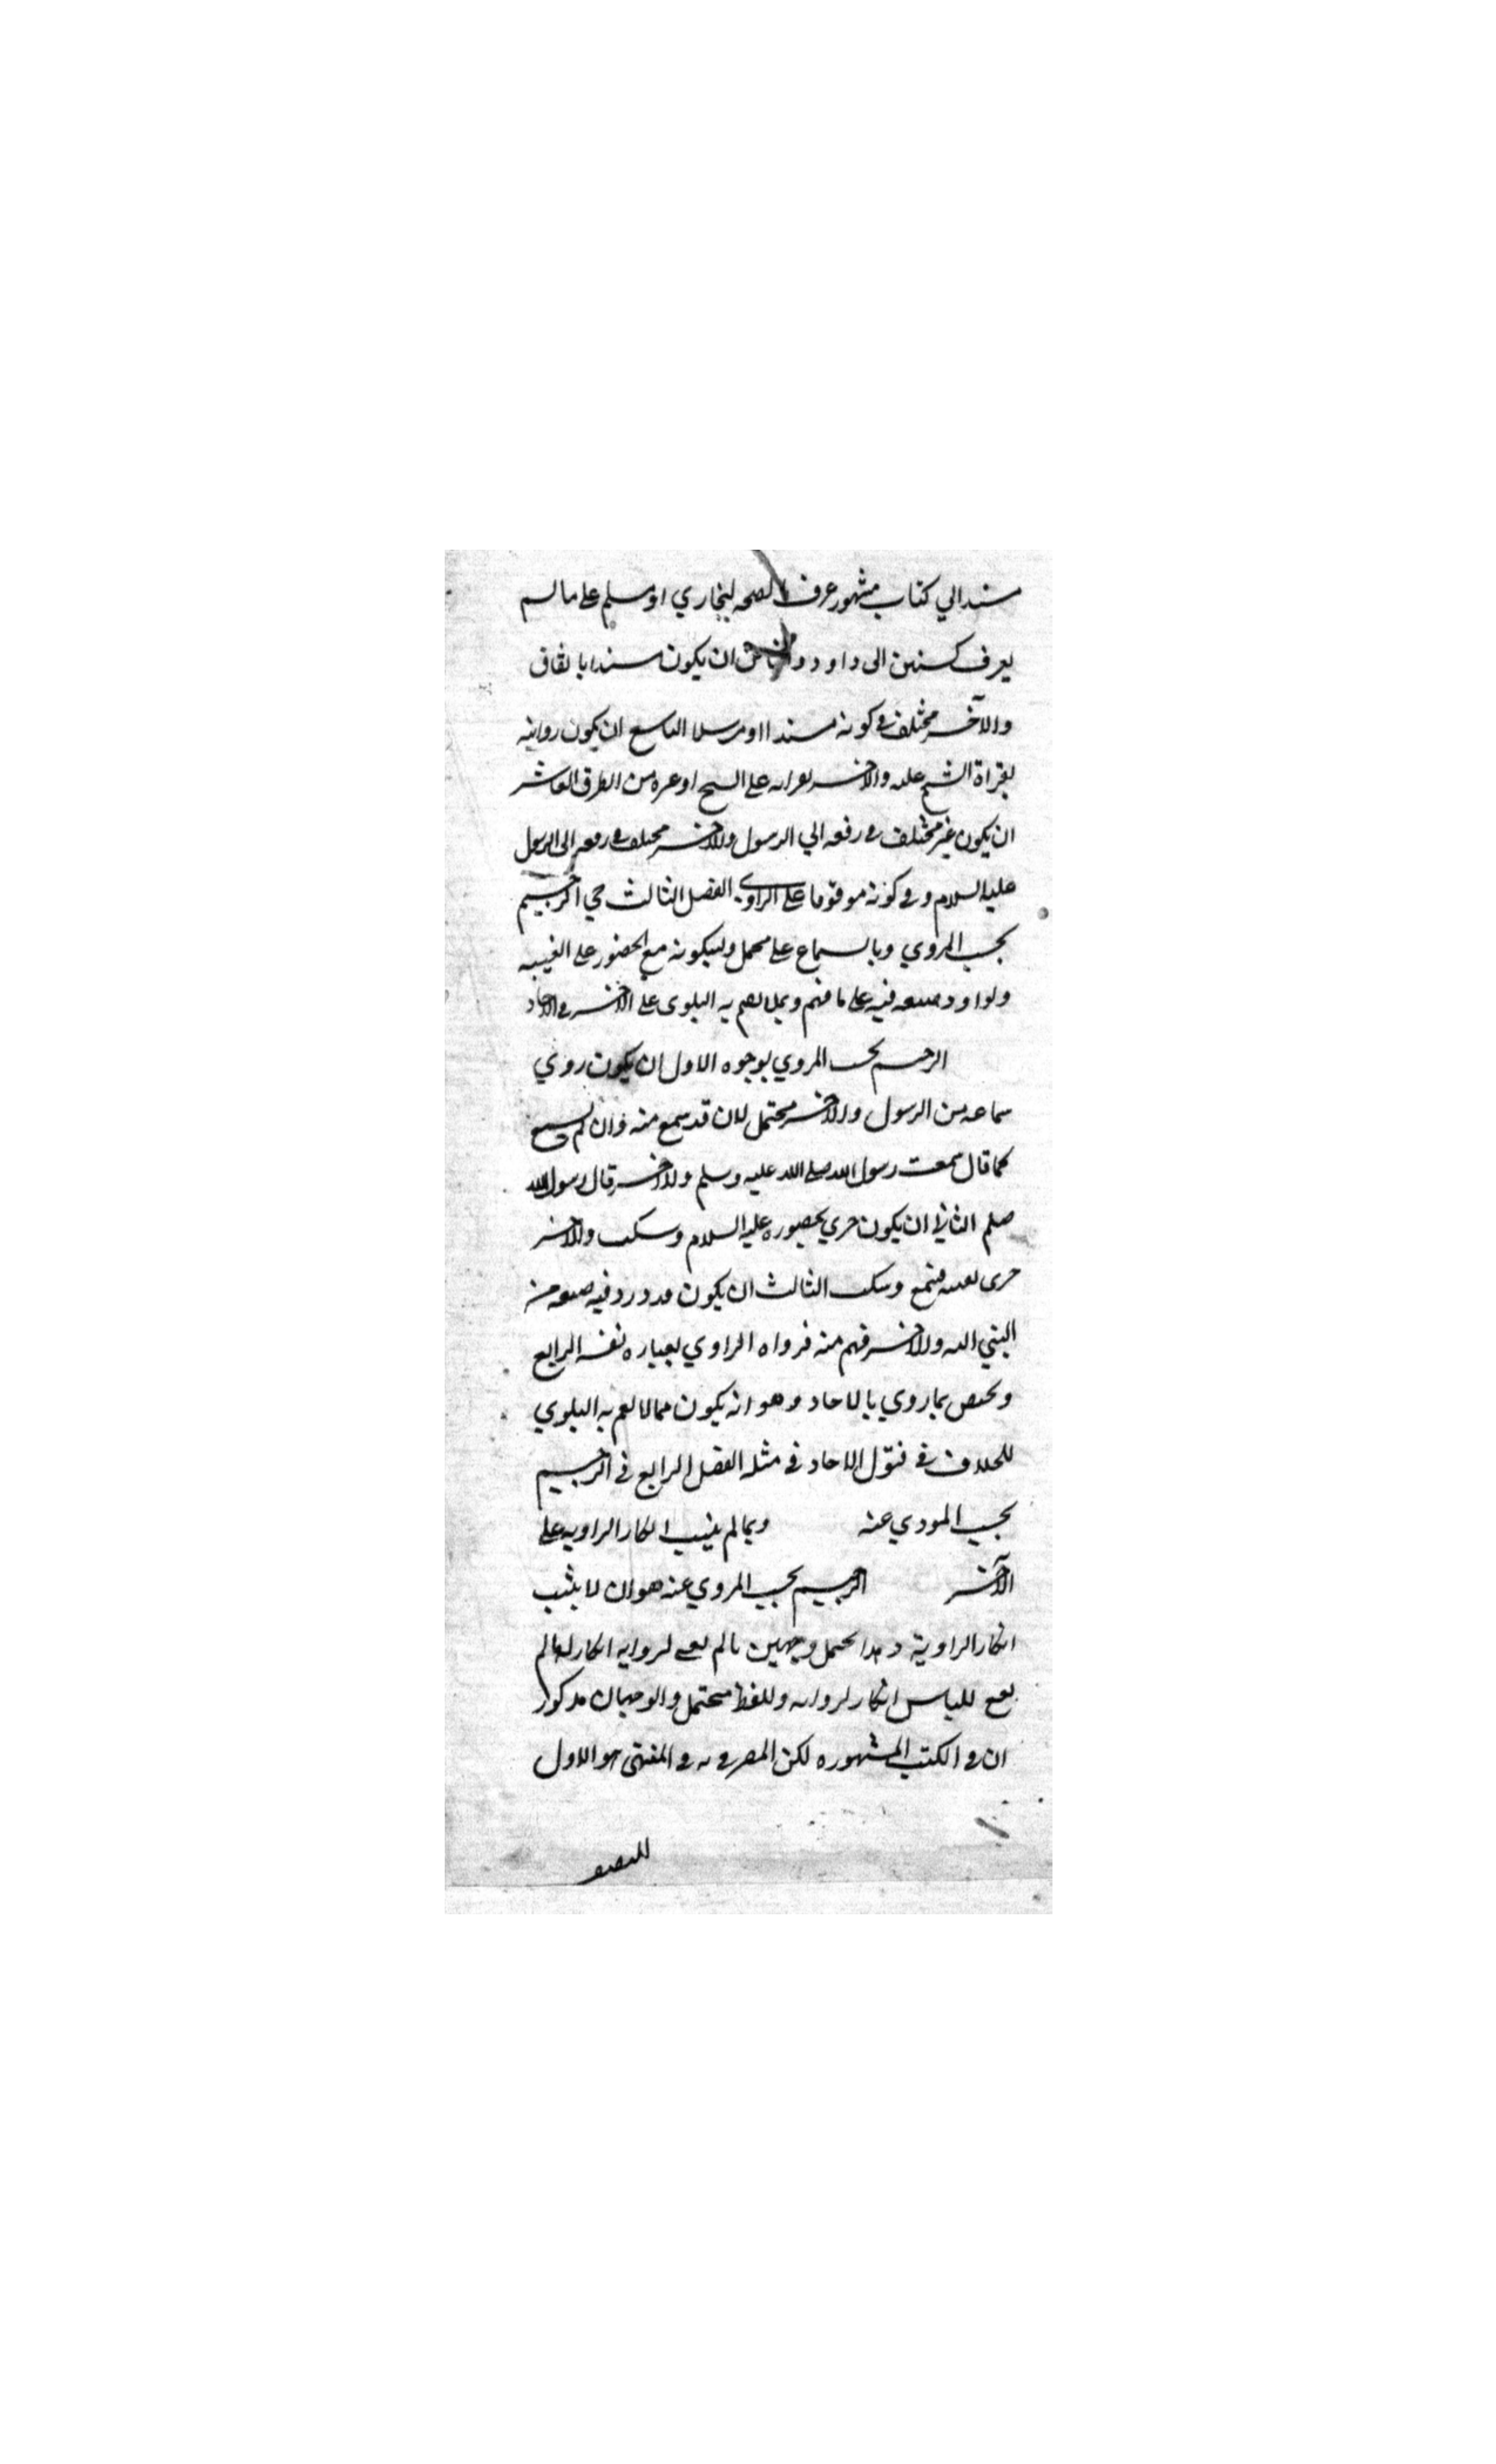 مسندالي كتاب مشهور عرف بالصحه لبخاري او مسلم على ما لم
يعرف كسنن ابى داود والثامن ان يكون مسندا باتفاق
والآخر مختلف في كونه مسندا او مرسلا التاسع ان يكون روايته
بقراة الشيخ عليه والاخر بقراته على الشيخ او غيره من الطرق العاشر
ان يكون غير مختلف في رفعه الي الرسول والاخر مختلف في رفعه الى الرسول
عليه السلام وفي كونه موقوفا على الراوي الفصل الثالث في الترجيح
بحسب المروي وبالسماع على محمل وبسكوته مع الحضور على الغيبه
ولو اورد صيغه فيه على ما فهم وبما لا يعم به البلوى على الاخر في الاحاد
الترجيح بحسب المروي بوجوه الاول ان يكون روي
سماعه من الرسول والاخر محتمل لان قد سمع منه وان لم يسمع
كما قال سمعت رسول الله صلى الله عليه وسلم والاخر قال رسول الله
صلم الثاني ان يكون جري بحضوره عليه السلام وسكت والاخر
جرى بغيبته فسمع وسكت الثالث ان يكون قد ورد فيه صيغه من
النبي الله والاخر فهم منه فرواه الراوي بعباره نفسه الرابع
ويختص بما روي بالاحاد وهو انه يكون مما لا يعم به البلوي
للخلاف في قبول الاحاد في مثله الفصل الرابع في الترجيح
بحسب المودي عنه وبما لم يثبت انكار الراويه على
الآخر الترجيح بحسب المروي عنه هو ان لا يثبت
انكار الراوية وهذا يحتمل وجهين ما لم يقع لروايه انكار له ما لم
يقع للناس انكار لروايه وللفظ محتمل والوجهان مذكور
ان في الكتب المشهوره لكن المصرح به في المنتهى هو الاول